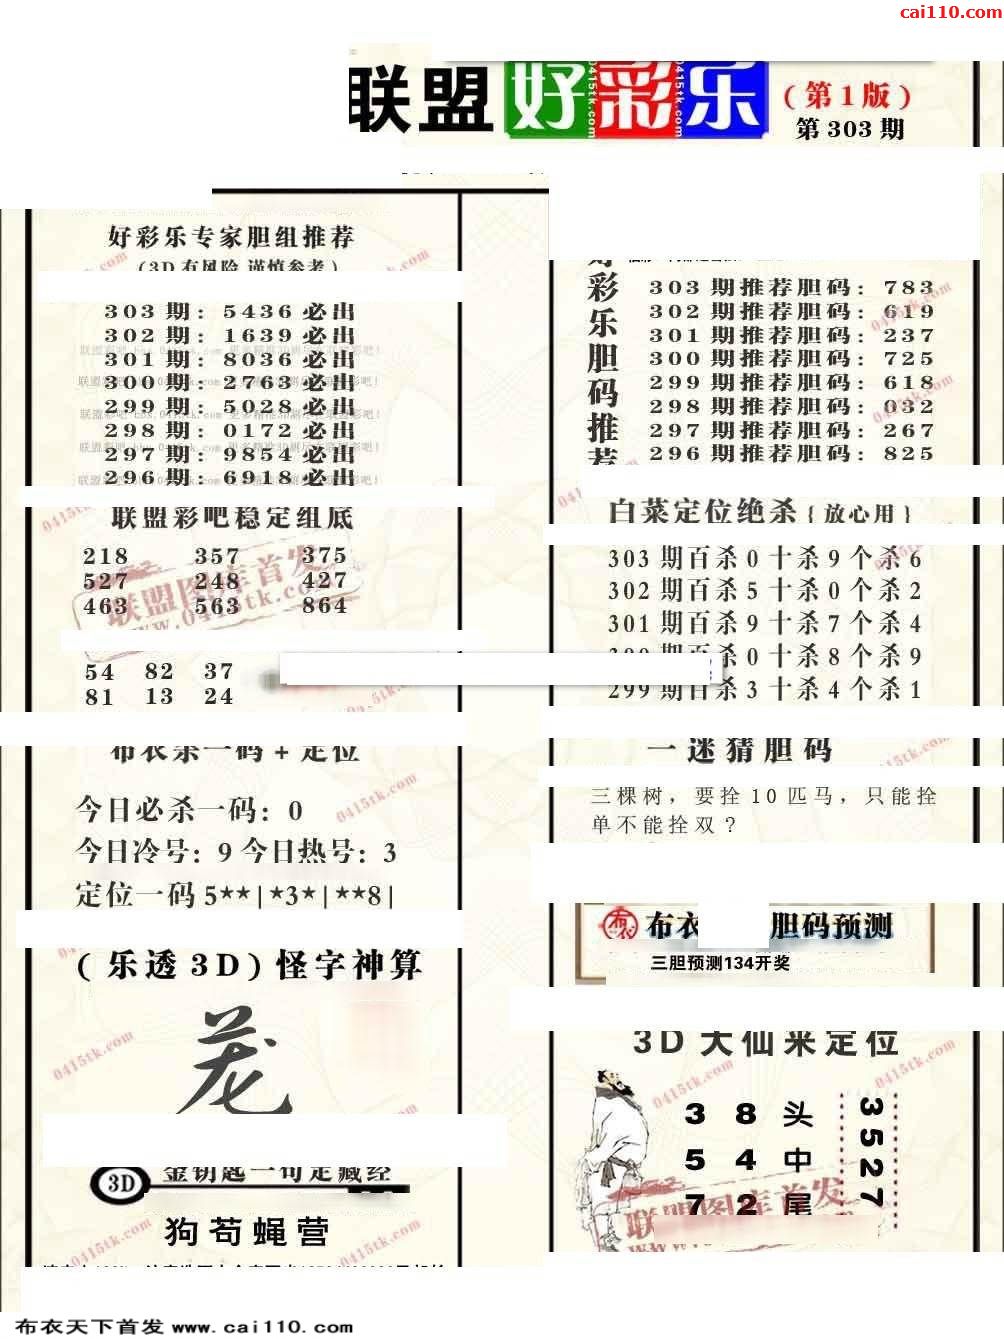 cai110.com
联盟 好彩乐
(第1版)
第 303 期
好彩乐专家胆组推荐
(3D 有风险 谨慎参考)
303 期: 5436 必出
302 期: 1639 必出
301 期: 8036 必出
300 期: 2763 必出
299 期: 5028 必出
298 期: 0172 必出
297 期: 9854 必出
296 期: 6918 必出
联盟彩吧稳定组底
218 357 375
527 248 427
463 563 864
联盟图库首发
www.0415tk.com
54 82 37
81 13 24
布衣杀一码 + 定位
今日必杀一码: 0
今日冷号: 9 今日热号: 3
定位一码 5★★|★3★|★★8|
(乐透 3D) 怪字神算
3D 金钥匙一句定藏经
狗苟蝇营
好彩乐胆码推荐
303 期推荐胆码: 783
302 期推荐胆码: 619
301 期推荐胆码: 237
300 期推荐胆码: 725
299 期推荐胆码: 618
298 期推荐胆码: 032
297 期推荐胆码: 267
296 期推荐胆码: 825
白菜定位绝杀{放心用}
303 期百杀 0 十杀 9 个杀 6
302 期百杀 5 十杀 0 个杀 2
301 期百杀 9 十杀 7 个杀 4
300 期百杀 0 十杀 8 个杀 9
299 期百杀 3 十杀 4 个杀 1
一迷猜胆码
三棵树，要拴 10 匹马，只能拴
单不能拴双？
布衣 胆码预测
三胆预测134开奖
3D 大仙来定位
3 8 头
5 4 中
7 2 尾
3527
联盟图库首发
0415tk.com
布衣天下首发 www.cai110.com